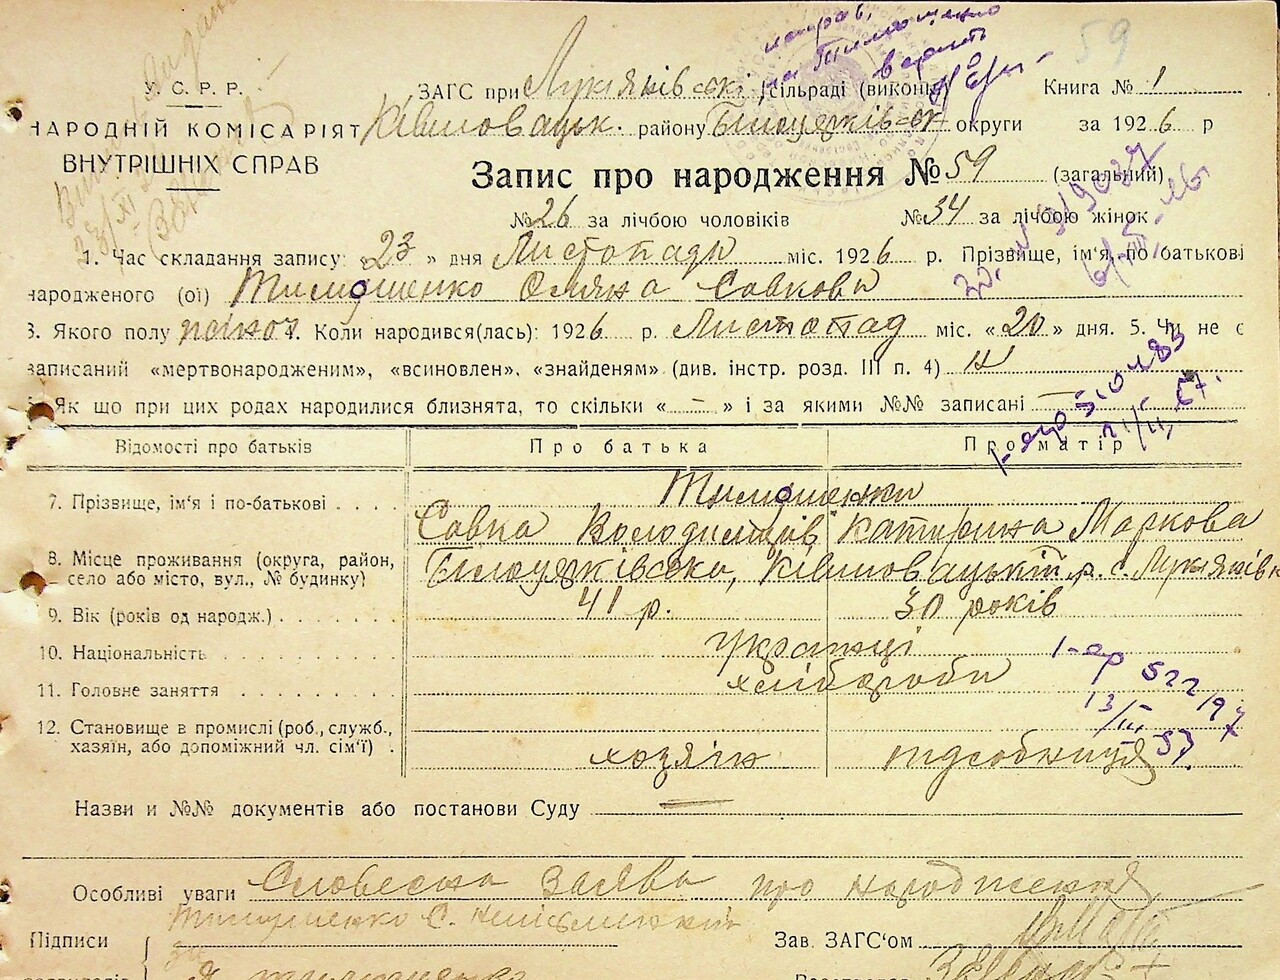 У.С.Р.Р.
НАРОДНІЙ КОМІСАРІЯТ
ВНУТРІШНІХ СПРАВ
59
ЗАГС при Лукяхів-ські сільраді (виконк Книга № 1
Ківшовацьк. району Білоцерків-ск округи за 1926 р
Запис про народження № 59 (загальний)
№ 26 за лічбою чоловіків № 34 за лічбою жінок
1. Час складання запису: «23» дня Листопада міс. 1926 р. Прізвище, ім'я, по батькові
народженого (ої) Тимошенко Савкова
3. Якого полу жіноч. Коли народився(лась): 1926 р. Листопад міс. «20» дня. 5. Чи не є
записаний «мертвонародженим», «всиновлен», «знайденям» (див. інстр. розд. III п. 4) Ні
Як що при цих родах народилися близнята, то скільки « – » і за якими №№ записані —
Відомості про батьків Про батька Про матір
7. Прізвище, ім'я і по-батькові Тимошенки
Савка Володимирів Катерина Маркова
8. Місце проживання (округа, район,
село або місто, вул., № будинку) Білоцерківська, Ківшовацький р. с.
9. Вік (років од народж.) 41 р. 30 років
10. Національність Українці
11. Головне заняття хлібороби
12. Становище в промислі (роб., служб.,
хазяїн, або допоміжний чл. сім'ї) хозяін підсобниця
1-ар 522197
13/III 57.
Назви и №№ документів або постанови Суду —
Особливі уваги Словесна заява про народження
Тимошенко С. неписьменний
Підписи Зав. ЗАГС'ом
за
Я Тимошенко